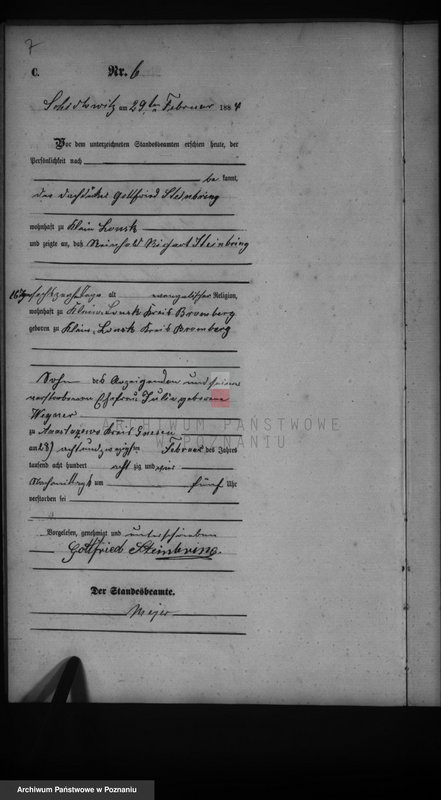 7
C. Nr. 6
am 29ten Februar 1884
Vor dem unterzeichneten Standesbeamten erschien heute, der
Persönlichkeit nach
be kannt,
der Gottfried Steinbring
wohnhaft zu Klein Lonsk
und zeigte an, daß Reinhold Richart Steinbring
16 Tage sechszehn Tage alt evangelischer Religion,
wohnhaft zu Klein-Lonsk Kreis Bromberg
geboren zu Klein-Lonsk Kreis Bromberg
Sohn des Anzeigenden und seiner
verstorbenen Ehefrau Julie geborene
Wegner
zu Kreis
am 28) achtundzwanzigsten Februar des Jahres
tausend acht hundert acht zig und vier
Nachmittags um fünf Uhr
verstorben sei
Vorgelesen, genehmigt und unterschrieben
Gottfried Steinbring.
Der Standesbeamte.
Meyer
ARCHIWUM PAŃSTWOWE
W POZNANIU
Archiwum Państwowe w Poznaniu